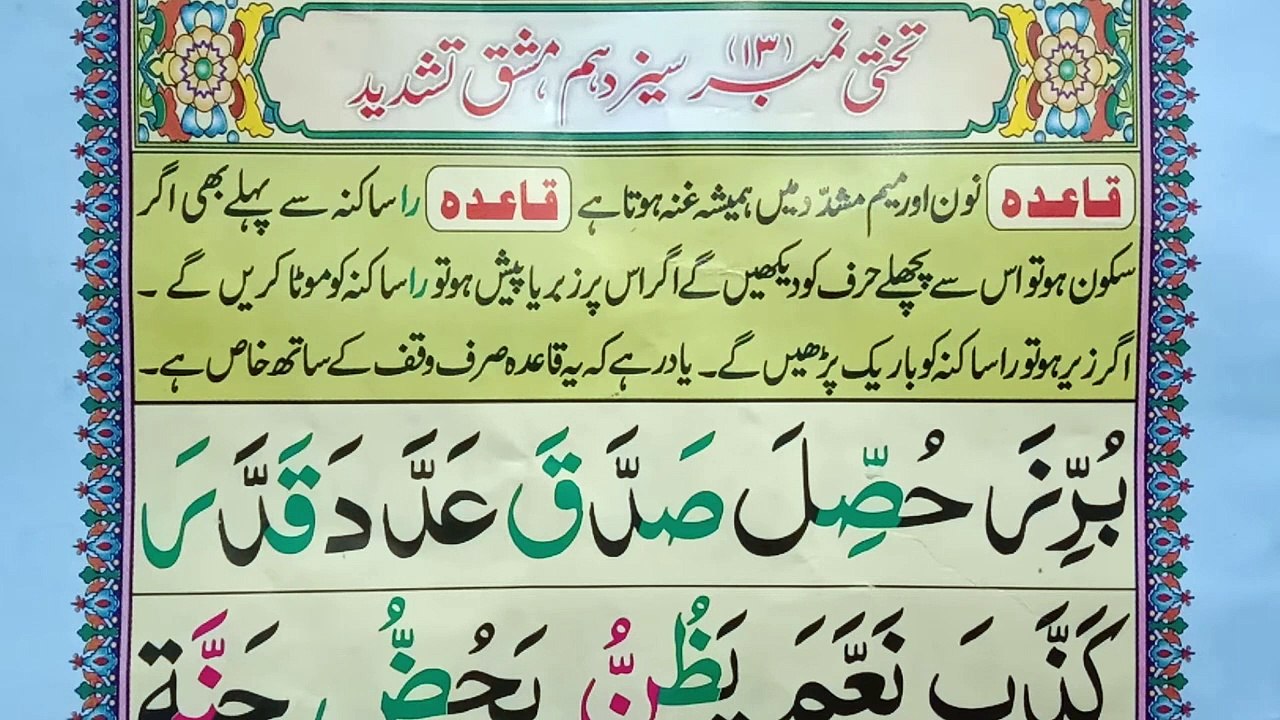 تختی نمبر (۱۳) سیزدہم، مشق تشدید
قاعدہ نون اور میم مشدّد میں ہمیشہ غنہ ہوتا ہے قاعدہ را ساکنہ سے پہلے بھی اگر
سکون ہو تو اس سے پچھلے حرف کو دیکھیں گے اگر اس پر زبر یا پیش ہو تو را ساکنہ کو موٹا کریں گے ۔
اگر زیر ہو تو را ساکنہ کو باریک پڑھیں گے ۔ یاد رہے کہ یہ قاعدہ صرف وقف کے ساتھ خاص ہے ۔
بُرِّزَ حُصِّلَ صَدَّقَ عَدَّدَ قَدَّرَ
كَذَّبَ نَعَّمَ يَظُنُّ يَحُضُّ جَنَّة